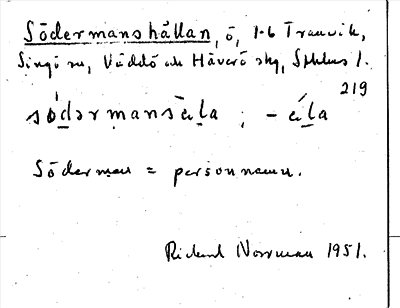 Södermanshällan, ö, 1.6 Tranvik,
Singö sn, Väddö och Häverö skg, Sthlms l.
219
sö́dərmansèla ; -éla
Söderman = personnamn.
Rickard Norrman 1951.